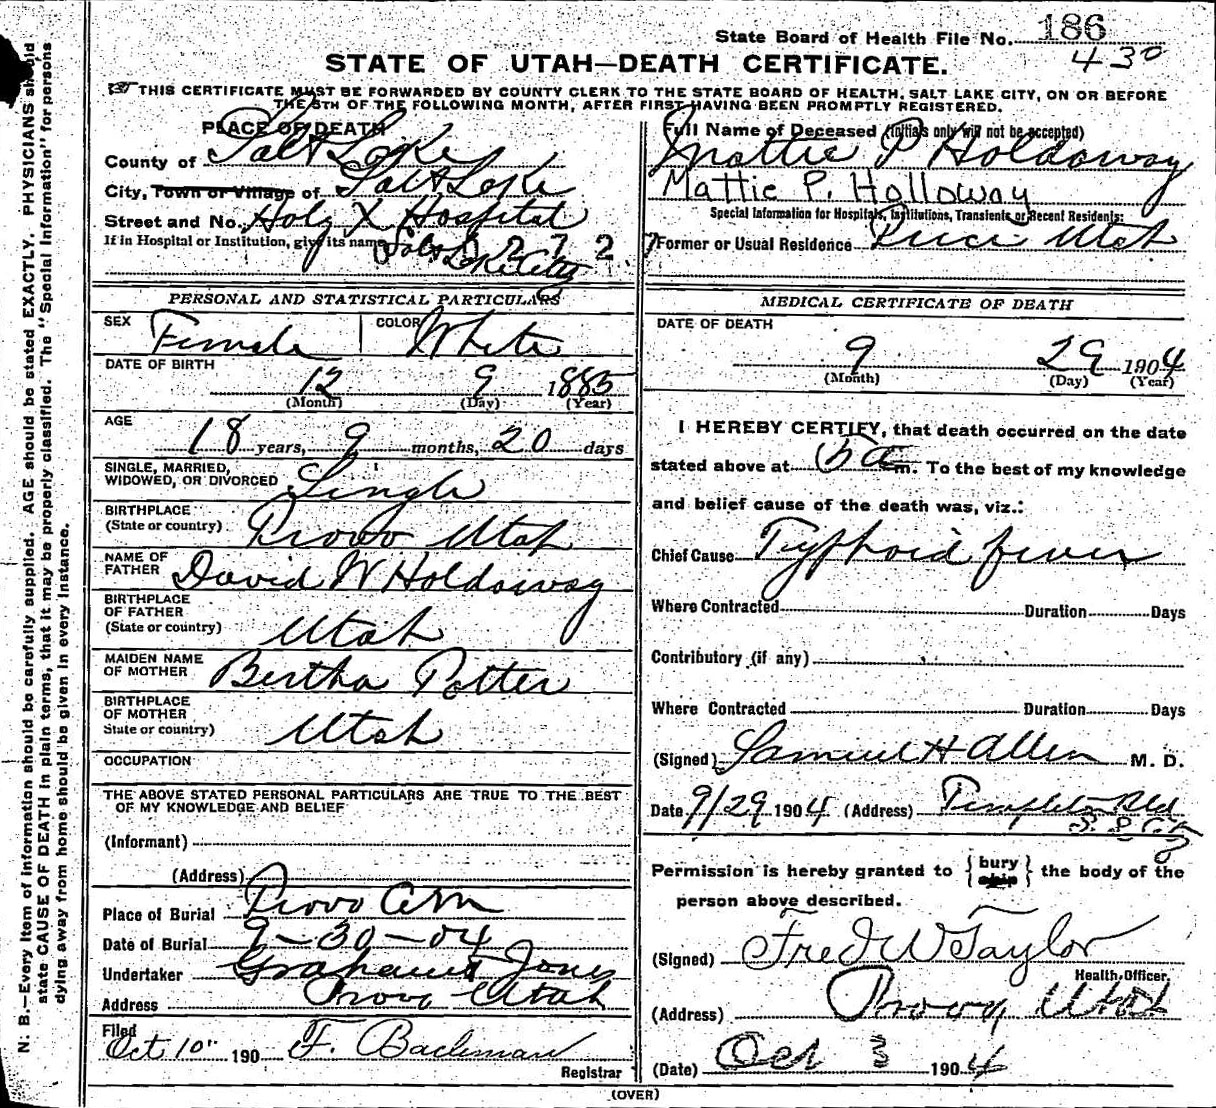 State Board of Health File No. 186
430
STATE OF UTAH—DEATH CERTIFICATE.
THIS CERTIFICATE MUST BE FORWARDED BY COUNTY CLERK TO THE STATE BOARD OF HEALTH, SALT LAKE CITY, ON OR BEFORE
THE 5TH OF THE FOLLOWING MONTH, AFTER FIRST HAVING BEEN PROMPTLY REGISTERED.
PLACE OF DEATH
County of Salt Lake
City, Town or Village of Salt Lake
Street and No. Holy X Hospital
If in Hospital or Institution, give its name Salt 0 2 7 2
Lake City
Full Name of Deceased (Initials only will not be accepted)
Mattie P Holdaway
Mattie P. Holloway
Special Information for Hospitals, Institutions, Transients or Recent Residents:
Former or Usual Residence Price Utah
PERSONAL AND STATISTICAL PARTICULARS
SEX Female COLOR White
DATE OF BIRTH
12 9 1885
(Month) (Day) (Year)
AGE
18 years, 9 months, 20 days
SINGLE, MARRIED,
WIDOWED, OR DIVORCED Single
BIRTHPLACE
(State or country) Provo Utah
NAME OF
FATHER David W Holdaway
BIRTHPLACE
OF FATHER
(State or country) Utah
MAIDEN NAME
OF MOTHER Bertha Potter
BIRTHPLACE
OF MOTHER
State or country) Utah
OCCUPATION
THE ABOVE STATED PERSONAL PARTICULARS ARE TRUE TO THE BEST
OF MY KNOWLEDGE AND BELIEF
(Informant)
(Address)
Place of Burial Provo Cem
Date of Burial 9-30-04
Undertaker Graham & Jones
Address Provo Utah
Filed
Oct 10" 190 F. Bachman
Registrar
MEDICAL CERTIFICATE OF DEATH
DATE OF DEATH
9 29 1904
(Month) (Day) (Year)
I HEREBY CERTIFY, that death occurred on the date
stated above at 5 a m. To the best of my knowledge
and belief cause of the death was, viz.:
Chief Cause Typhoid fever
Where Contracted Duration Days
Contributory (if any)
Where Contracted Duration Days
(Signed) Samuel H Allen M. D.
Date 9/29 1904 (Address) Templeton Bld
S. L. City
Permission is hereby granted to { bury ship } the body of the
person above described.
(Signed) Fred W Taylor
Health Officer.
(Address) Provo, Utah
(Date) Oct 3 1904
(OVER)
N. B.—Every item of information should be carefully supplied. AGE should be stated EXACTLY. PHYSICIANS should
state CAUSE OF DEATH in plain terms, that it may be properly classified. The "Special Information" for persons
dying away from home should be given in every instance.